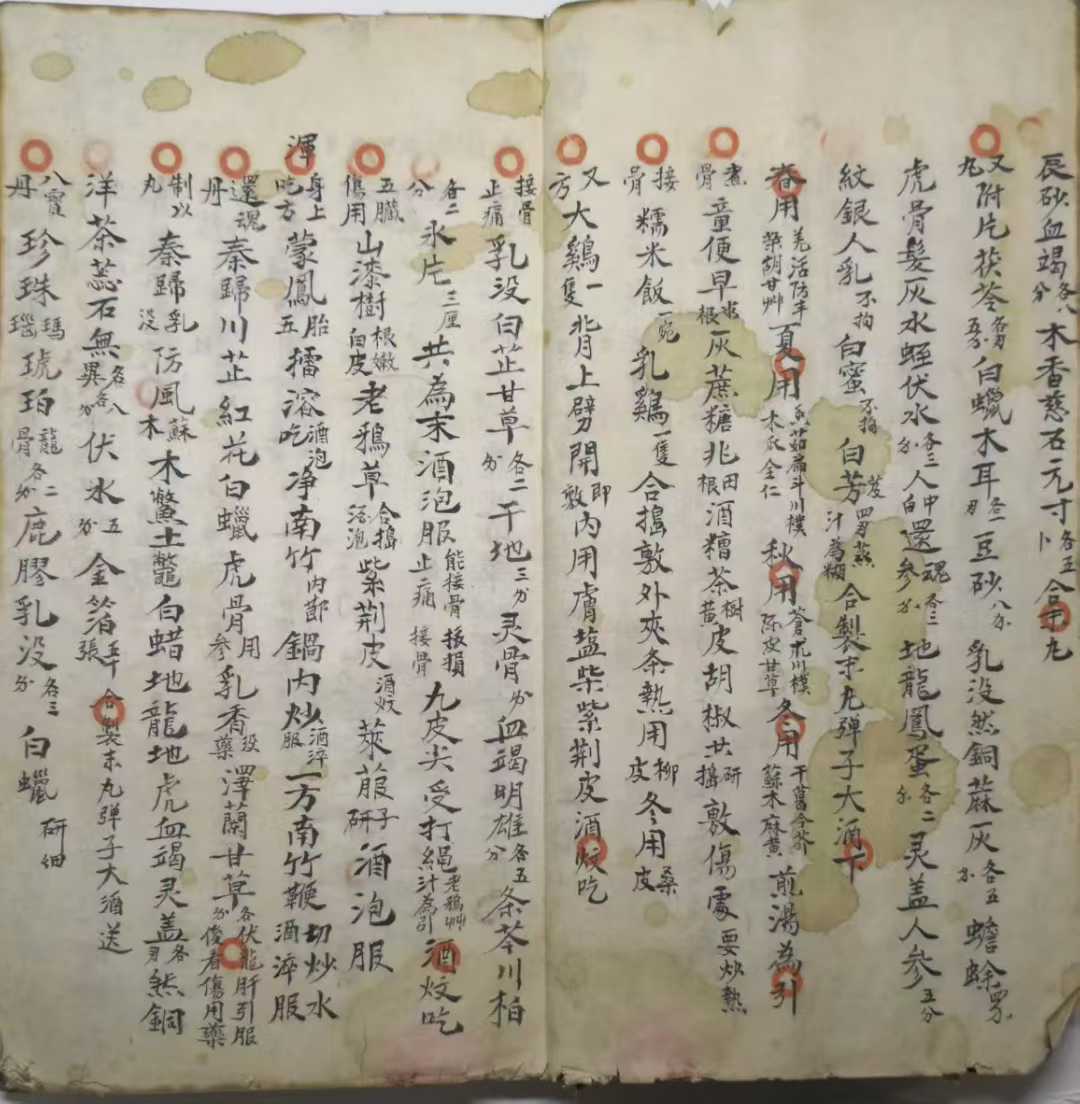 辰砂血竭各八分木香慈石元寸各五卜合末丸
又丸附片茯苓各五分白蠟木耳各一豆砂八分乳没然銅蔴灰各五分蟾蜍四分
虎骨髪灰水蛭伏水各三分人中白還魂參各三分地龍鳳蛋各二分灵盖人參五分
紋銀人乳不拘白蜜不拘白芨四刄熬汁為糊合製末丸弹子大酒下
春用羌活防丰柴胡甘艸夏用木瓜全仁秋用蒼朮川樸陈皮甘草冬用干葛合芥蘇木麻黄煎湯為引
煮骨童便早根灰蔗糖兆田根酒糟茶黄樹皮胡椒共研搗敷傷處要炒熱
接骨糯米飯一碗乳鷄一隻合搗敷外夾条熱用柳皮冬用桑皮
又方大鷄一隻北月上劈開即敷内用膚塩柴紫荆皮酒炆吃
接骨止痛乳没白芷甘草各二分干地三分灵骨分血竭明雄各五分条芩川柏
各二分氷片三厘共為末酒泡服能接骨振損止痛接骨九皮尖受打繩老鴉艸汁為引酒炆吃
五臟傷用山漆樹根嫩白皮老鴉草合搗酒泡紫荆皮酒炆萊菔子研酒泡服
渾身上吃方蒙鳳胎五擂溶酒泡吃净南竹内節鍋内炒酒淬服一方南竹鞭切炒水酒淬服
還魂丹秦歸川芷紅花白蠟虎骨用參乳香没藥澤蘭甘草各分伏龍肝引服後看傷用藥
制以丸秦歸乳没防風蘇木木鱉土鱉白蜡地龍地虎血竭灵盖各刄然銅
洋茶蕊石無異各八分伏水五分金箔五十張合製末丸弹子大酒送
八寳丹珍珠瑪瑙琥珀龍骨各二分鹿膠乳没各三分白蠟研細